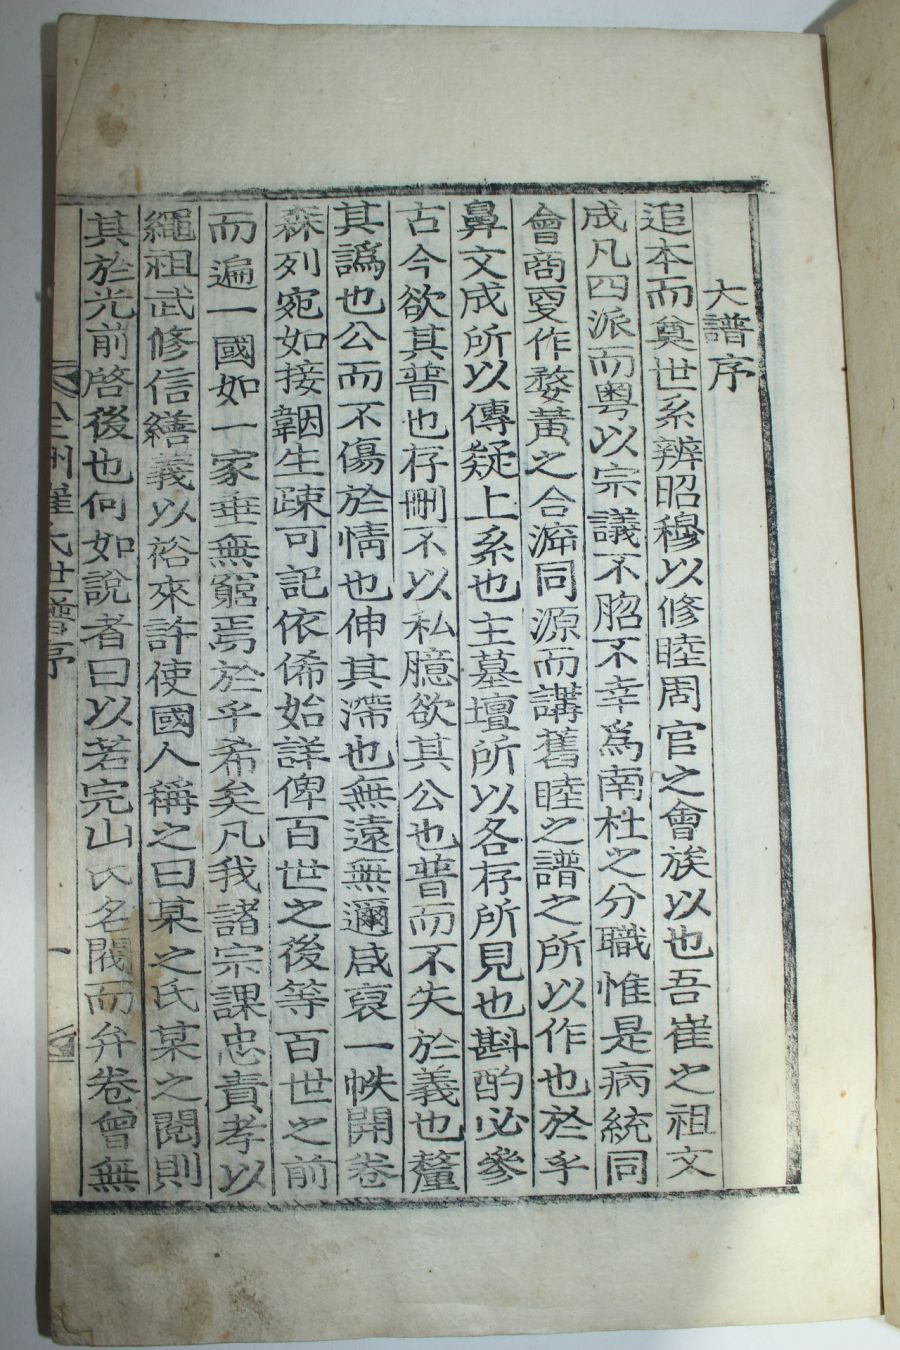 大譜序
追本而奠世系辨昭穆以修睦周官之會族以也吾崔之祖文
成凡四派而粤以宗議不脗不幸爲南杜之分職惟是病統同
會商更作婺黃之合泝同源而講舊睦之譜之所以作也於乎
鼻文成所以傳疑上系也主墓壇所以各存所見也斟酌必參
古今欲其普也存刪不以私臆欲其公也普而不失於義也釐
其譌也公而不傷於情也伸其滯也無遠無邇咸裒一帙開卷
森列宛如接韻生疎可記依俙始詳俾百世之後等百世之前
而遍一國如一家垂無窮焉於乎希矣凡我諸宗課忠責孝以
繩祖武修信繕義以裕來許使國人稱之曰某之氏某之閥則
其於光前啓後也何如說者曰以若完山氏名閥而弁卷曾無
全州崔氏世譜序
一